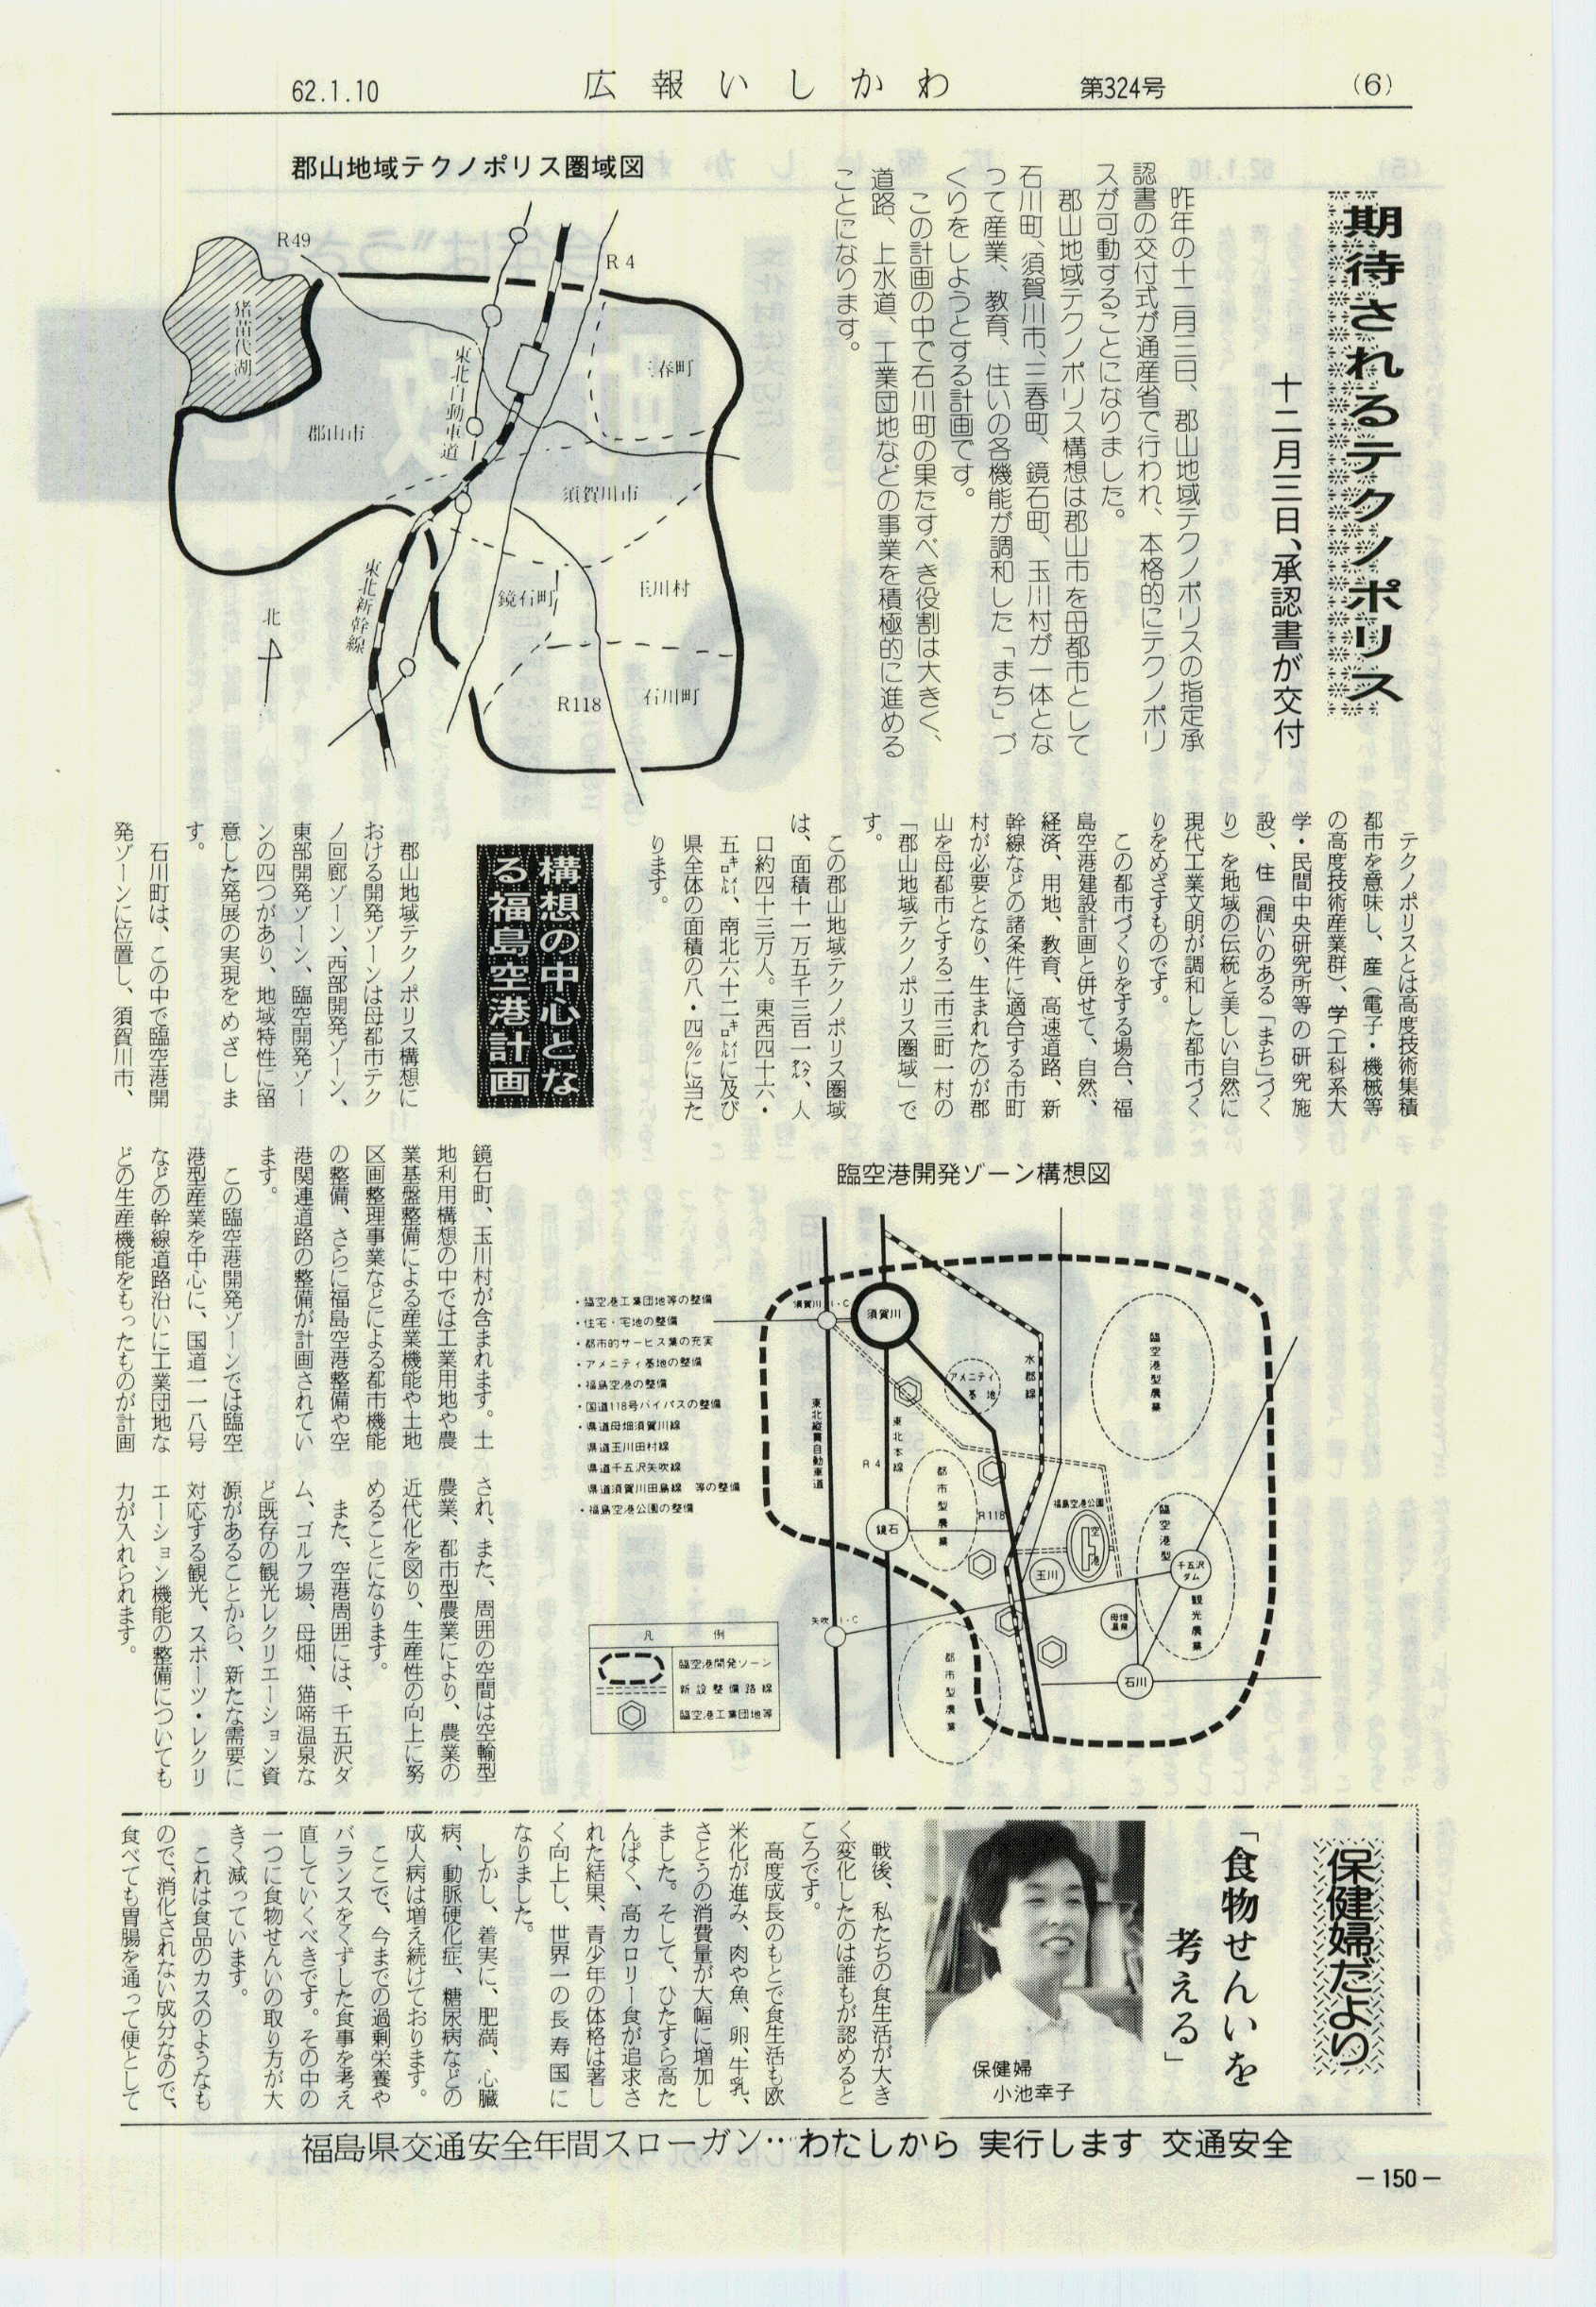 62.1.10
広報いしかわ
第324号
(6)
期待されるテクノポリス
十二月三日、承認書が交付
昨年の十二月三日、郡山地域テクノポリスの指定承
認書の交付式が通産省で行われ、本格的にテクノポリ
スが可動することになりました。
郡山地域テクノポリス構想は郡山市を母都市として
石川町、須賀川市、三春町、鏡石町、玉川村が一体とな
って産業、教育、住いの各機能が調和した「まち」づ
くりをしようとする計画です。
この計画の中で石川町の果たすべき役割は大きく、
道路、上水道、工業団地などの事業を積極的に進める
ことになります。
郡山地域テクノポリス圏域図
R49
R4
猪苗代湖
東北自動車道
三春町
郡山市
須賀川市
東北新幹線
鏡石町
玉川村
北
R118
石川町
テクノポリスとは高度技術集積
都市を意味し、産(電子・機械等
の高度技術産業群)、学(工科系大
学・民間中央研究所等の研究施
設)、住(潤いのある「まち」づく
り)を地域の伝統と美しい自然に
現代工業文明が調和した都市づく
りをめざすものです。
この都市づくりをする場合、福
島空港建設計画と併せて、自然、
経済、用地、教育、高速道路、新
幹線などの諸条件に適合する市町
村が必要となり、生まれたのが郡
山を母都市とする二市三町一村の
「郡山地域テクノポリス圏域」で
す。
この郡山地域テクノポリス圏域
は、面積十一万五千三百一㌶、人
口約四十三万人。東西四十六・
五㌔㍍、南北六十二㌔㍍に及び
県全体の面積の八・四%に当た
ります。
構想の中心とな
る福島空港計画
郡山地域テクノポリス構想に
おける開発ゾーンは母都市テク
ノ回廊ゾーン、西部開発ゾーン、
東部開発ゾーン、臨空開発ゾー
ンの四つがあり、地域特性に留
意した発展の実現をめざしま
す。
石川町は、この中で臨空港開
発ゾーンに位置し、須賀川市、
鏡石町、玉川村が含まれます。土
地利用構想の中では工業用地や農
業基盤整備による産業機能や土地
区画整理事業などによる都市機能
の整備、さらに福島空港整備や空
港関連道路の整備が計画されてい
ます。
この臨空港開発ゾーンでは臨空
港型産業を中心に、国道一一八号
などの幹線道路沿いに工業団地な
どの生産機能をもったものが計画
され、また、周囲の空間は空輸型
農業、都市型農業により、農業の
近代化を図り、生産性の向上に努
めることになります。
また、空港周囲には、千五沢ダ
ム、ゴルフ場、母畑、猫啼温泉な
ど既存の観光レクリエーション資
源があることから、新たな需要に
対応する観光、スポーツ・レクリ
エーション機能の整備についても
力が入れられます。
臨空港開発ゾーン構想図
・臨空港工業団地等の整備
・住宅・宅地の整備
・都市的サービス業の充実
・アメニティ基地の整備
・福島空港の整備
・国道118号バイパスの整備
・県道母畑須賀川線
県道玉川田村線
県道千五沢矢吹線
県道須賀川田島線 等の整備
・福島空港公園の整備
須賀川I・C
須賀川
アメニティ
基地
水郡線
臨空港型農業
東北縦貫自動車道
東北本線
R4
都市型農業
R118
鏡石
福島空港公園
空港
玉川
臨空港型
観光農業
千五沢
ダム
母畑
温泉
矢吹I・C
都市型農業
石川
凡例
臨空港開発ゾーン
新設整備路線
臨空港工業団地等
保健婦だより
「食物せんいを
考える」
保健婦
小池幸子
戦後、私たちの食生活が大き
く変化したのは誰もが認めると
ころです。
高度成長のもとで食生活も欧
米化が進み、肉や魚、卵、牛乳、
さとうの消費量が大幅に増加し
ました。そして、ひたすら高た
んぱく、高カロリー食が追求さ
れた結果、青少年の体格は著し
く向上し、世界一の長寿国に
なりました。
しかし、着実に、肥満、心臓
病、動脈硬化症、糖尿病などの
成人病は増え続けております。
ここで、今までの過剰栄養や
バランスをくずした食事を考え
直していくべきです。その中の
一つに食物せんいの取り方が大
きく減っています。
これは食品のカスのようなも
ので、消化されない成分なので、
食べても胃腸を通って便として
福島県交通安全年間スローガン…わたしから 実行します 交通安全
—150—